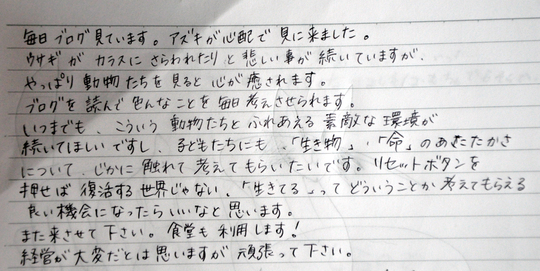 毎日ブログ見ています。アズキが心配で見に来ました。
ウサギがカラスにさらわれたりと悲しい事が続いていますが、
やっぱり動物たちを見ると心が癒されます。
ブログを読んで色んなことを毎日考えさせられます。
いつまでも、こういう動物たちとふれあえる素敵な環境が
続いてほしいですし、子どもたちにも、「生き物」、「命」のあたたかさ
について、じかに触れて考えてもらいたいです。リセットボタンを
押せば復活する世界じゃない、「生きてる」ってどういうことか考えてもらえる
良い機会になったらいいなと思います。
また来させて下さい。食堂も利用します!
経営が大変だとは思いますが頑張って下さい。